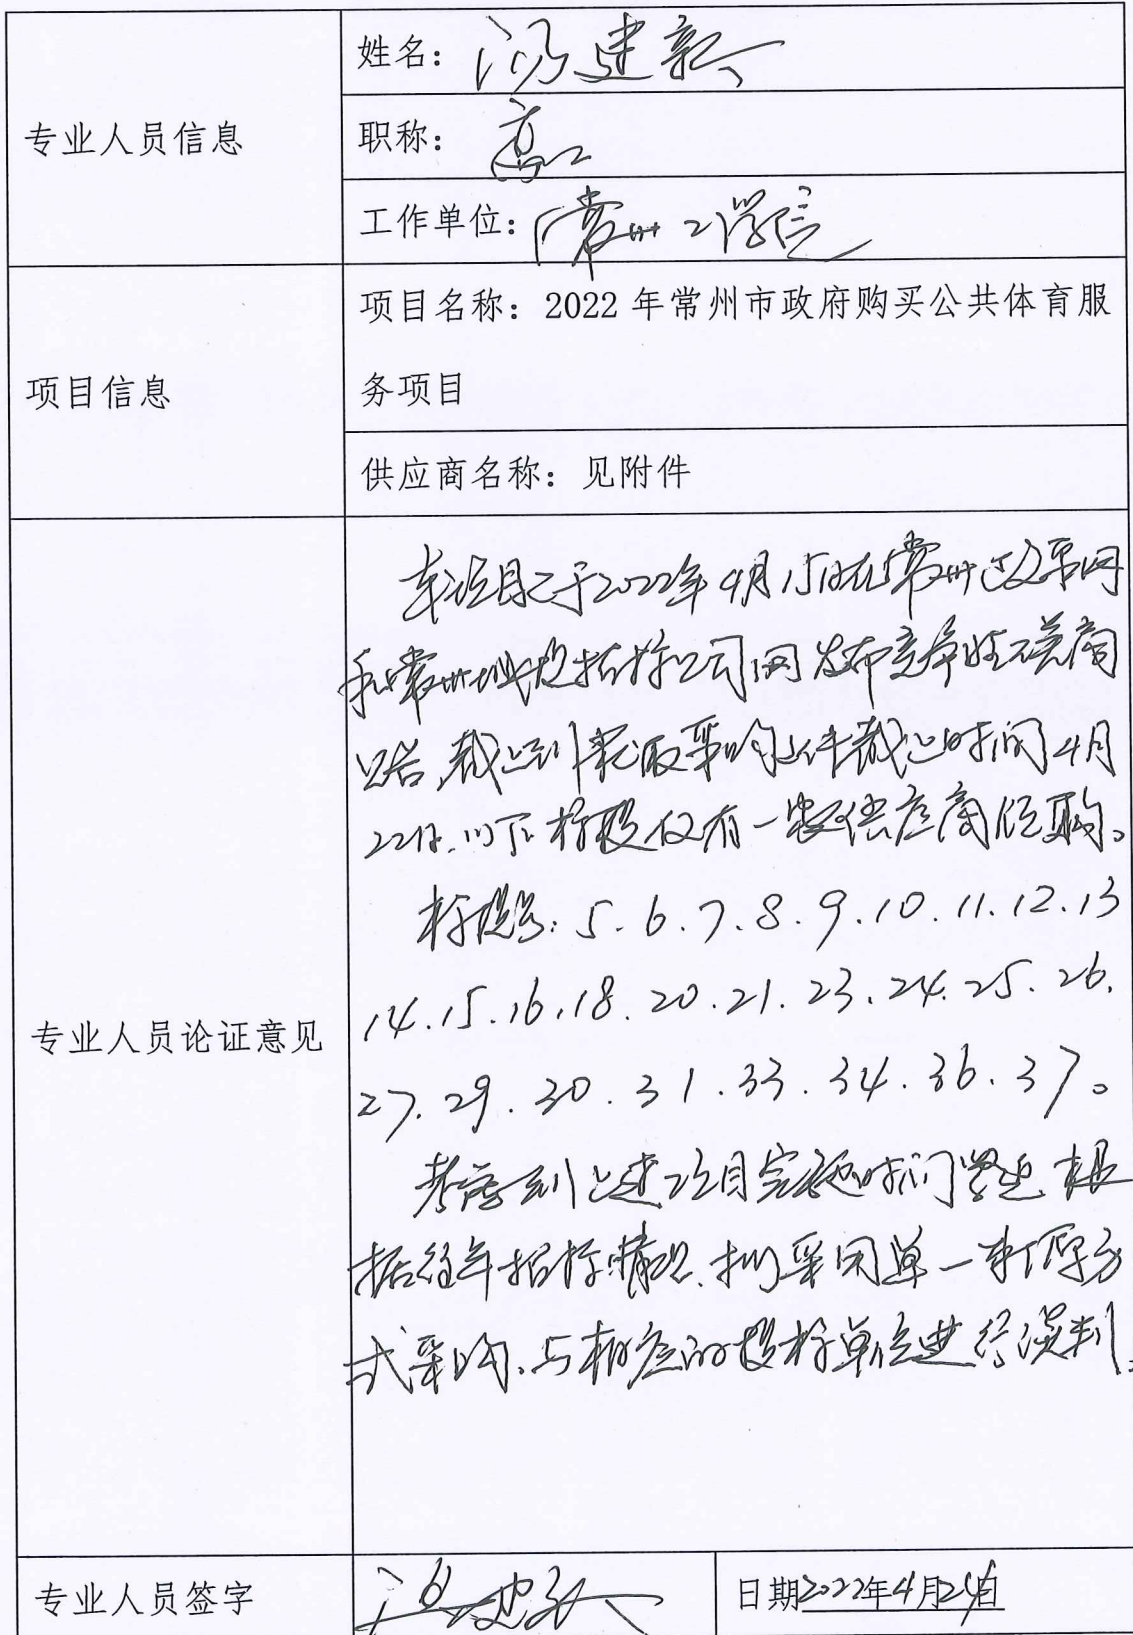 专业人员信息
姓名：汤建新
职称：高工
工作单位：常州工学院
项目信息
项目名称：2022 年常州市政府购买公共体育服
务项目
供应商名称：见附件
专业人员论证意见
本项目已于2022年4月15日在常州政采网
和常州 招标公司网发布竞争性磋商
公告,截止到获取采购文件截止时间4月
22日,以下标段仅有一家供应商领购。
标段号:5.6.7.8.9.10.11.12.13
14.15.16.18.20.21.23.24.25.26.
27.29.30.31.33.34.36.37。
考虑到上述项目实施时间紧迫,根
据往年招标情况,拟采用单一来源方
式采购,与相应的投标单位进行谈判。
专业人员签字
汤建新
日期2022年4月24日